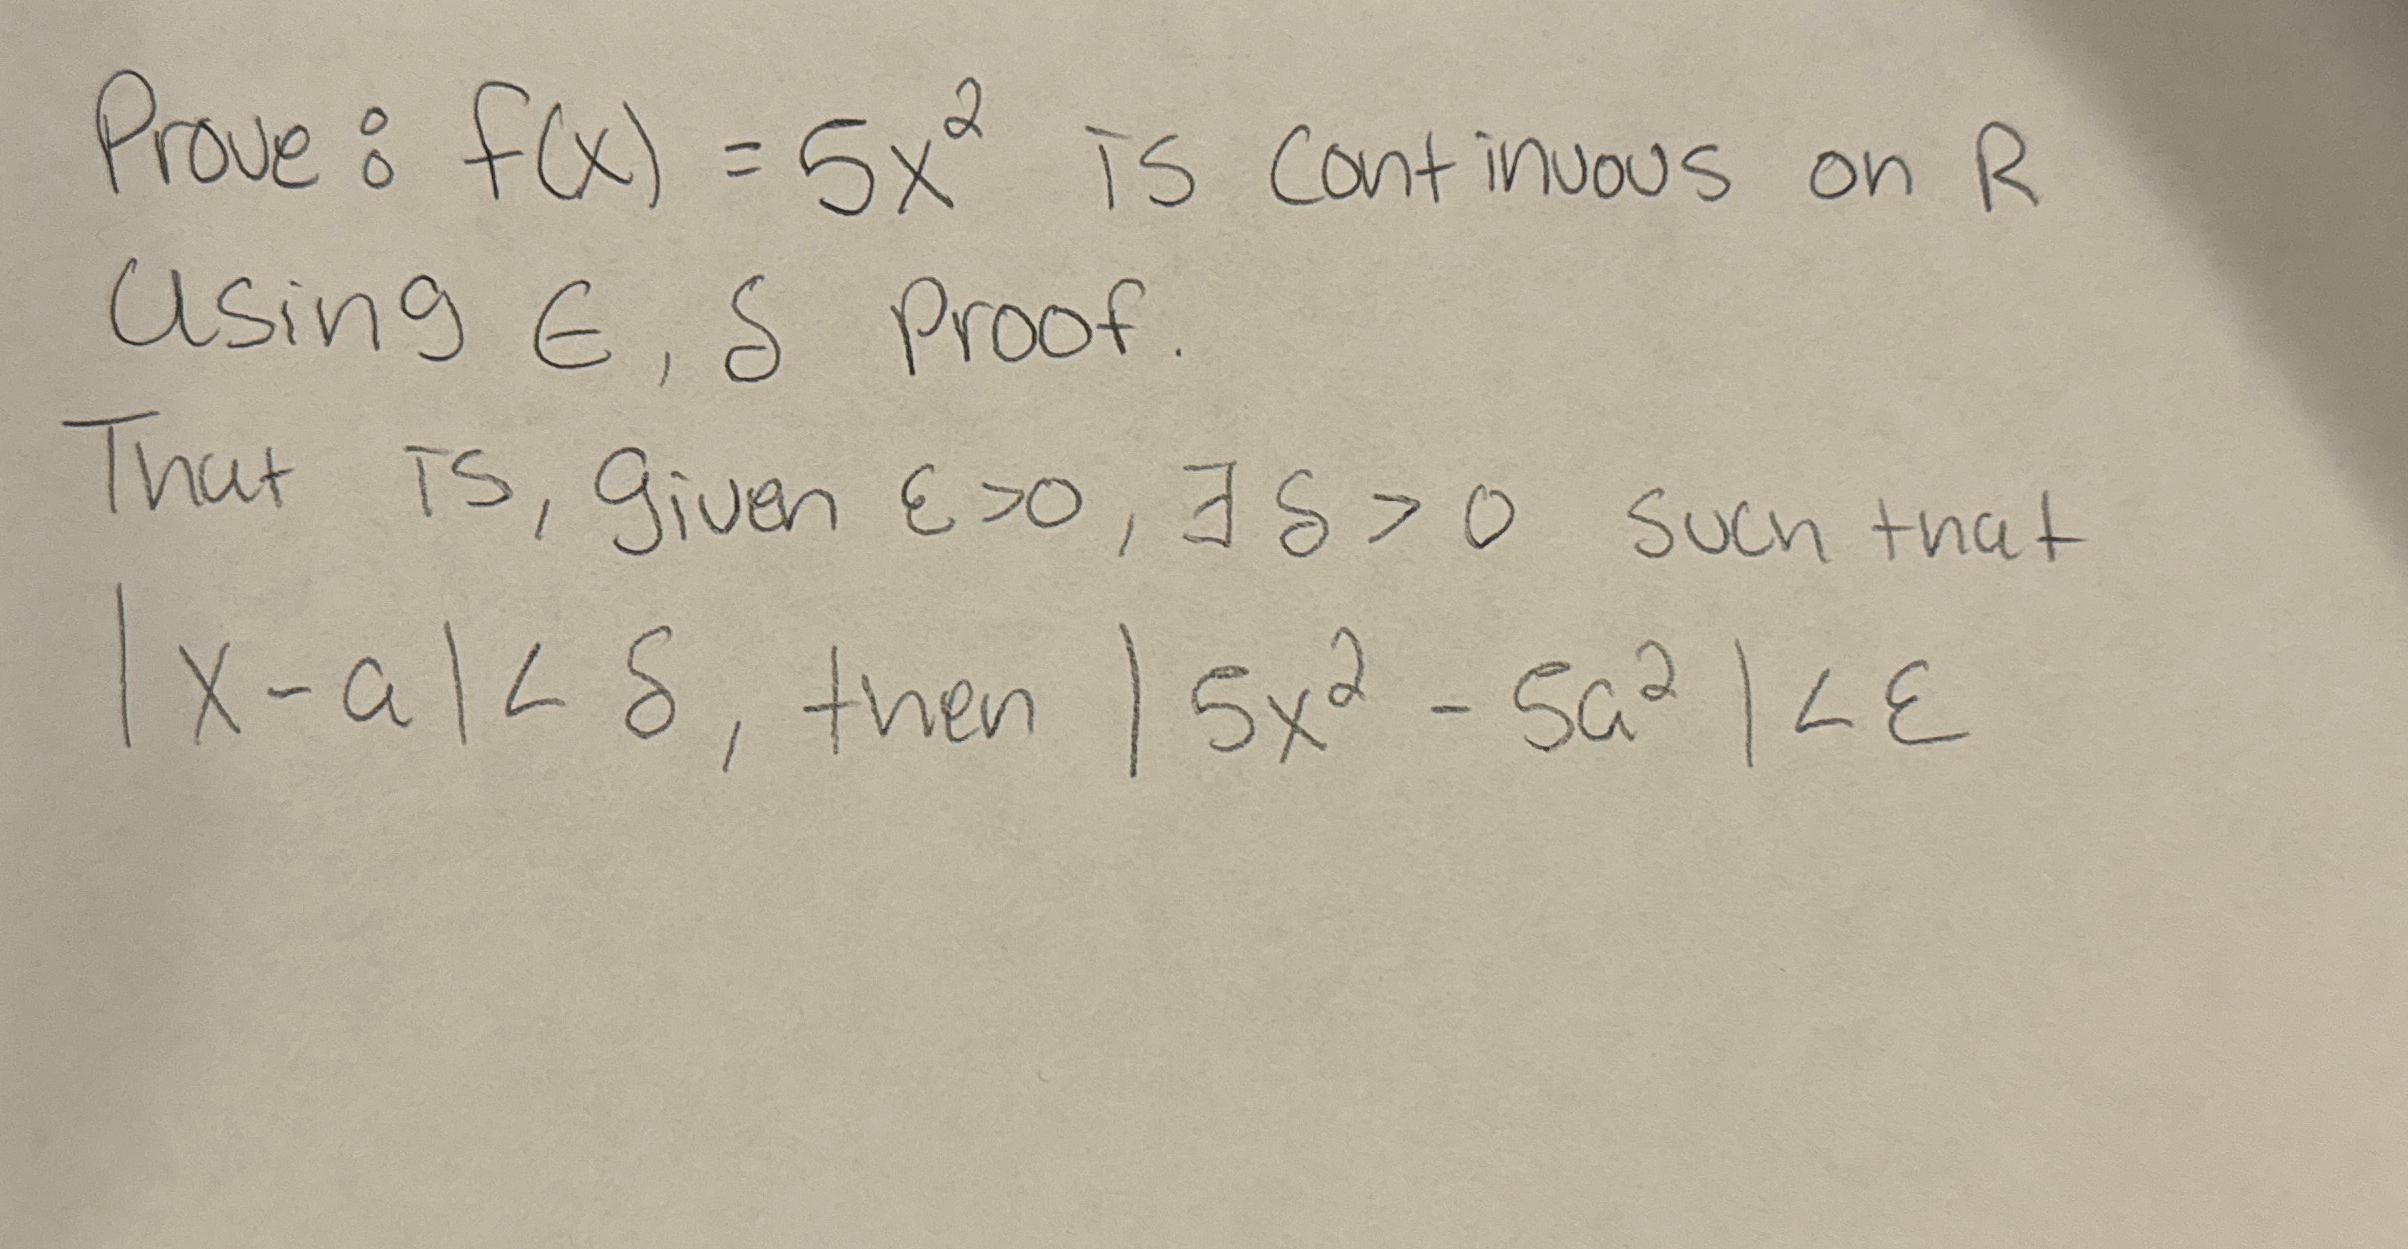 Prove: f(x) = 5x² is continuous on R
Using ∈, δ Proof.
That is, given ε>0, ∃ δ > 0 such that
|x-a| < δ, then | 5x² - 5a² | < ε